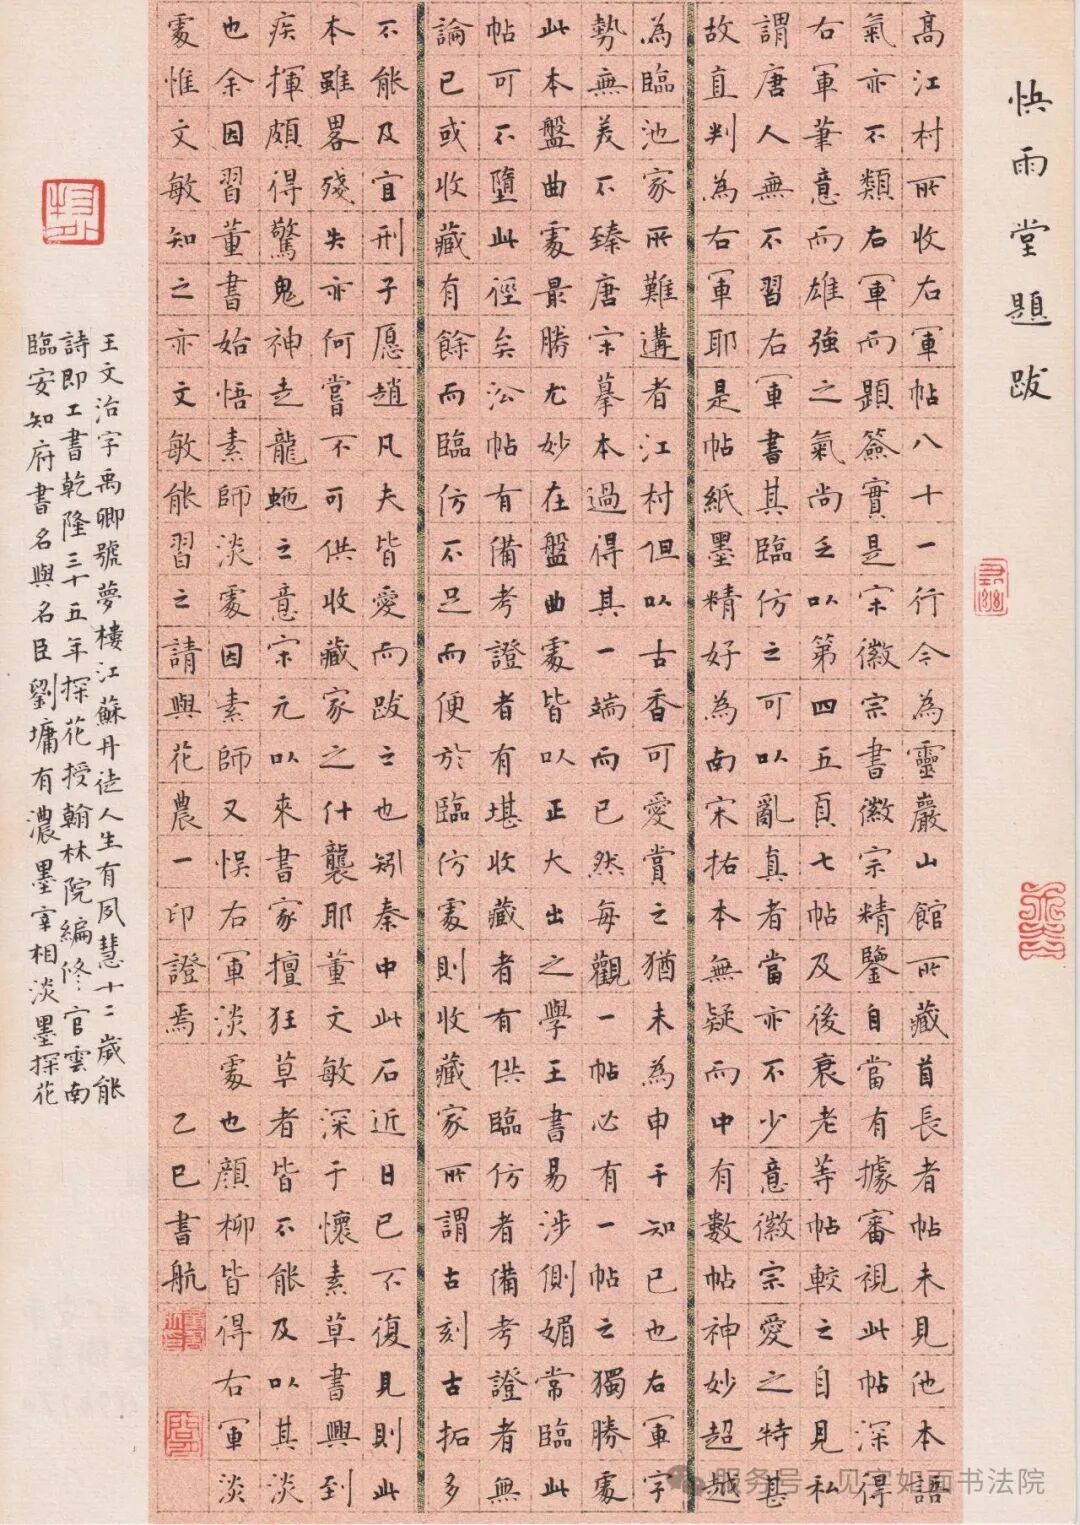 快雨堂題跋
高江村所收右軍帖八十一行今為靈巖山館所藏首長者帖未見他本語
氣亦不類右軍而題簽實是宋徽宗書徽宗精鑒自當有據審視此帖深得
右軍筆意而雄強之氣尚乏以第四五頁七帖及後衰老等帖較之自見私
謂唐人無不習右軍書其臨仿之可以亂真者當亦不少意徽宗愛之特甚
故直判為右軍耶是帖紙墨精好為南宋拓本無疑而中有數帖神妙超越
為臨池家所難遘者江村但以古香可愛賞之猶未為申于知己也右軍字
勢無美不臻唐宋摹本過得其一端而已然每觀一帖必有一帖之獨勝處
此本盤曲處最勝尤妙在盤曲處皆以正大出之學王書易涉側媚常臨此
帖可不墮此徑矣汾帖有備考證者有堪收藏者有供臨仿者備考證者無
論已或收藏有餘而臨仿不足而便於臨仿處則收藏家所謂古刻古拓多
不能及宜刑子愿趙凡夫皆愛而跋之也矧秦中此石近日已不復見則此
本雖畧殘失亦何嘗不可供收藏家之什襲耶董文敏深于懷素草書興到
疾揮頗得驚鬼神走龍虵之意宋元以來書家擅狂草者皆不能及以其淡
也余因習董書始悟素師淡處因素師又悮右軍淡處也顏柳皆得右軍淡
處惟文敏知之亦文敏能習之請與花農一印證焉 乙巳書航
王文治字禹卿號夢樓江蘇丹徒人生有夙慧十二歲能
詩即工書乾隆三十五年探花授翰林院編修官雲南
臨安知府書名與名臣劉墉有濃墨宰相淡墨探花
服务号·见字如面书法院